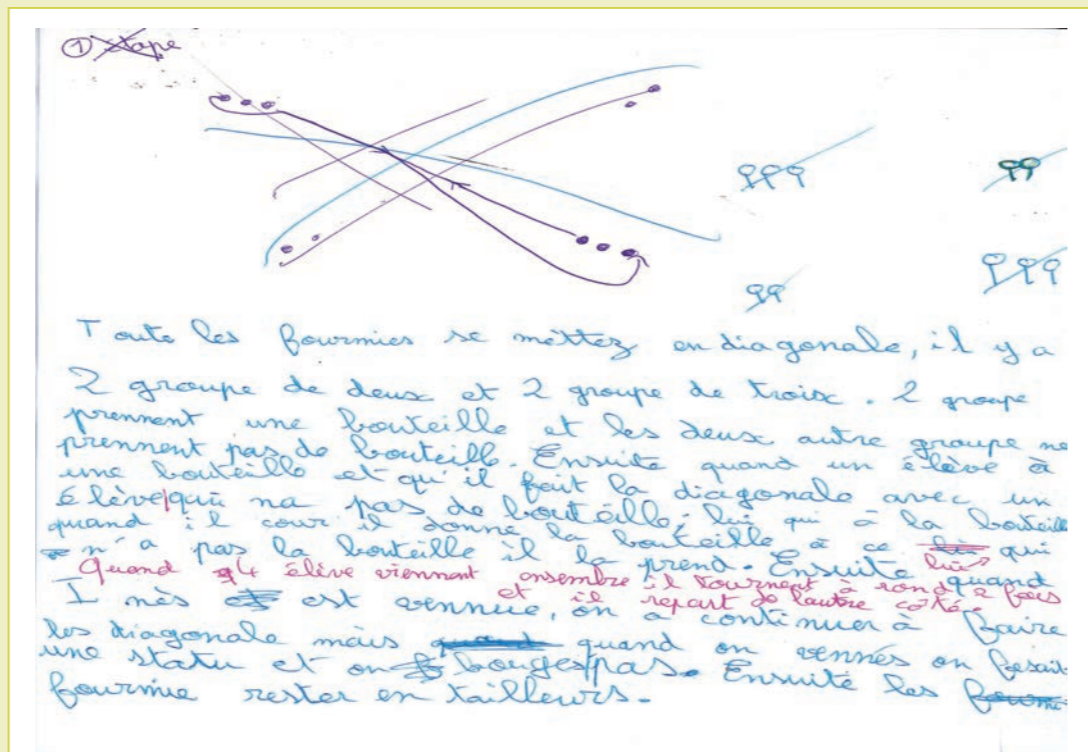 ① étape
Toute les fourmies se mettez en diagonale, il y a
2 groupe de deux et 2 groupe de troix. 2 groupe
prennent une bouteille et les deux autre groupe ne
prennent pas de bouteill. Ensuite quand un élève à
une bouteille et qu'il fait la diagonale avec un
élève qui na pas de bouteille, lui qui à la bouteille
quand il cour il donne la bouteille à ce lui qui
n'a pas la bouteille il la prend. Ensuite quand
Quand 4 élève viennent ensembre il tournent à rond 2 fois
et il repart de l'autre coté.
I nès est vennue, on a continuer à faire
les diagonale mais quand on vennès on fesait
une statu et on bouges pas. Ensuite les
fourmie rester en tailleurs.